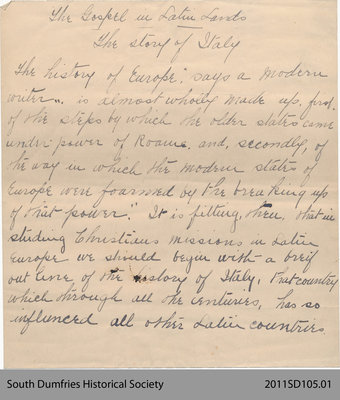 The Gospel in Latin Lands
The story of Italy
The history of Europe", says a modern
writer ". is almost wholly made up, first,
of the steps by which the older states came
under power of Roame, and, secondly, of
the way in which the modern states of
Europe were foarmed by the breaking up
of that power." It is fitting, then, that in
studing Christians missions in Latin
Europe we should begin with a breif
out line of the history of Italy, that country
which through all the centuries, has so
influnced all other Latin countries.
South Dumfries Historical Society
2011SD105.01